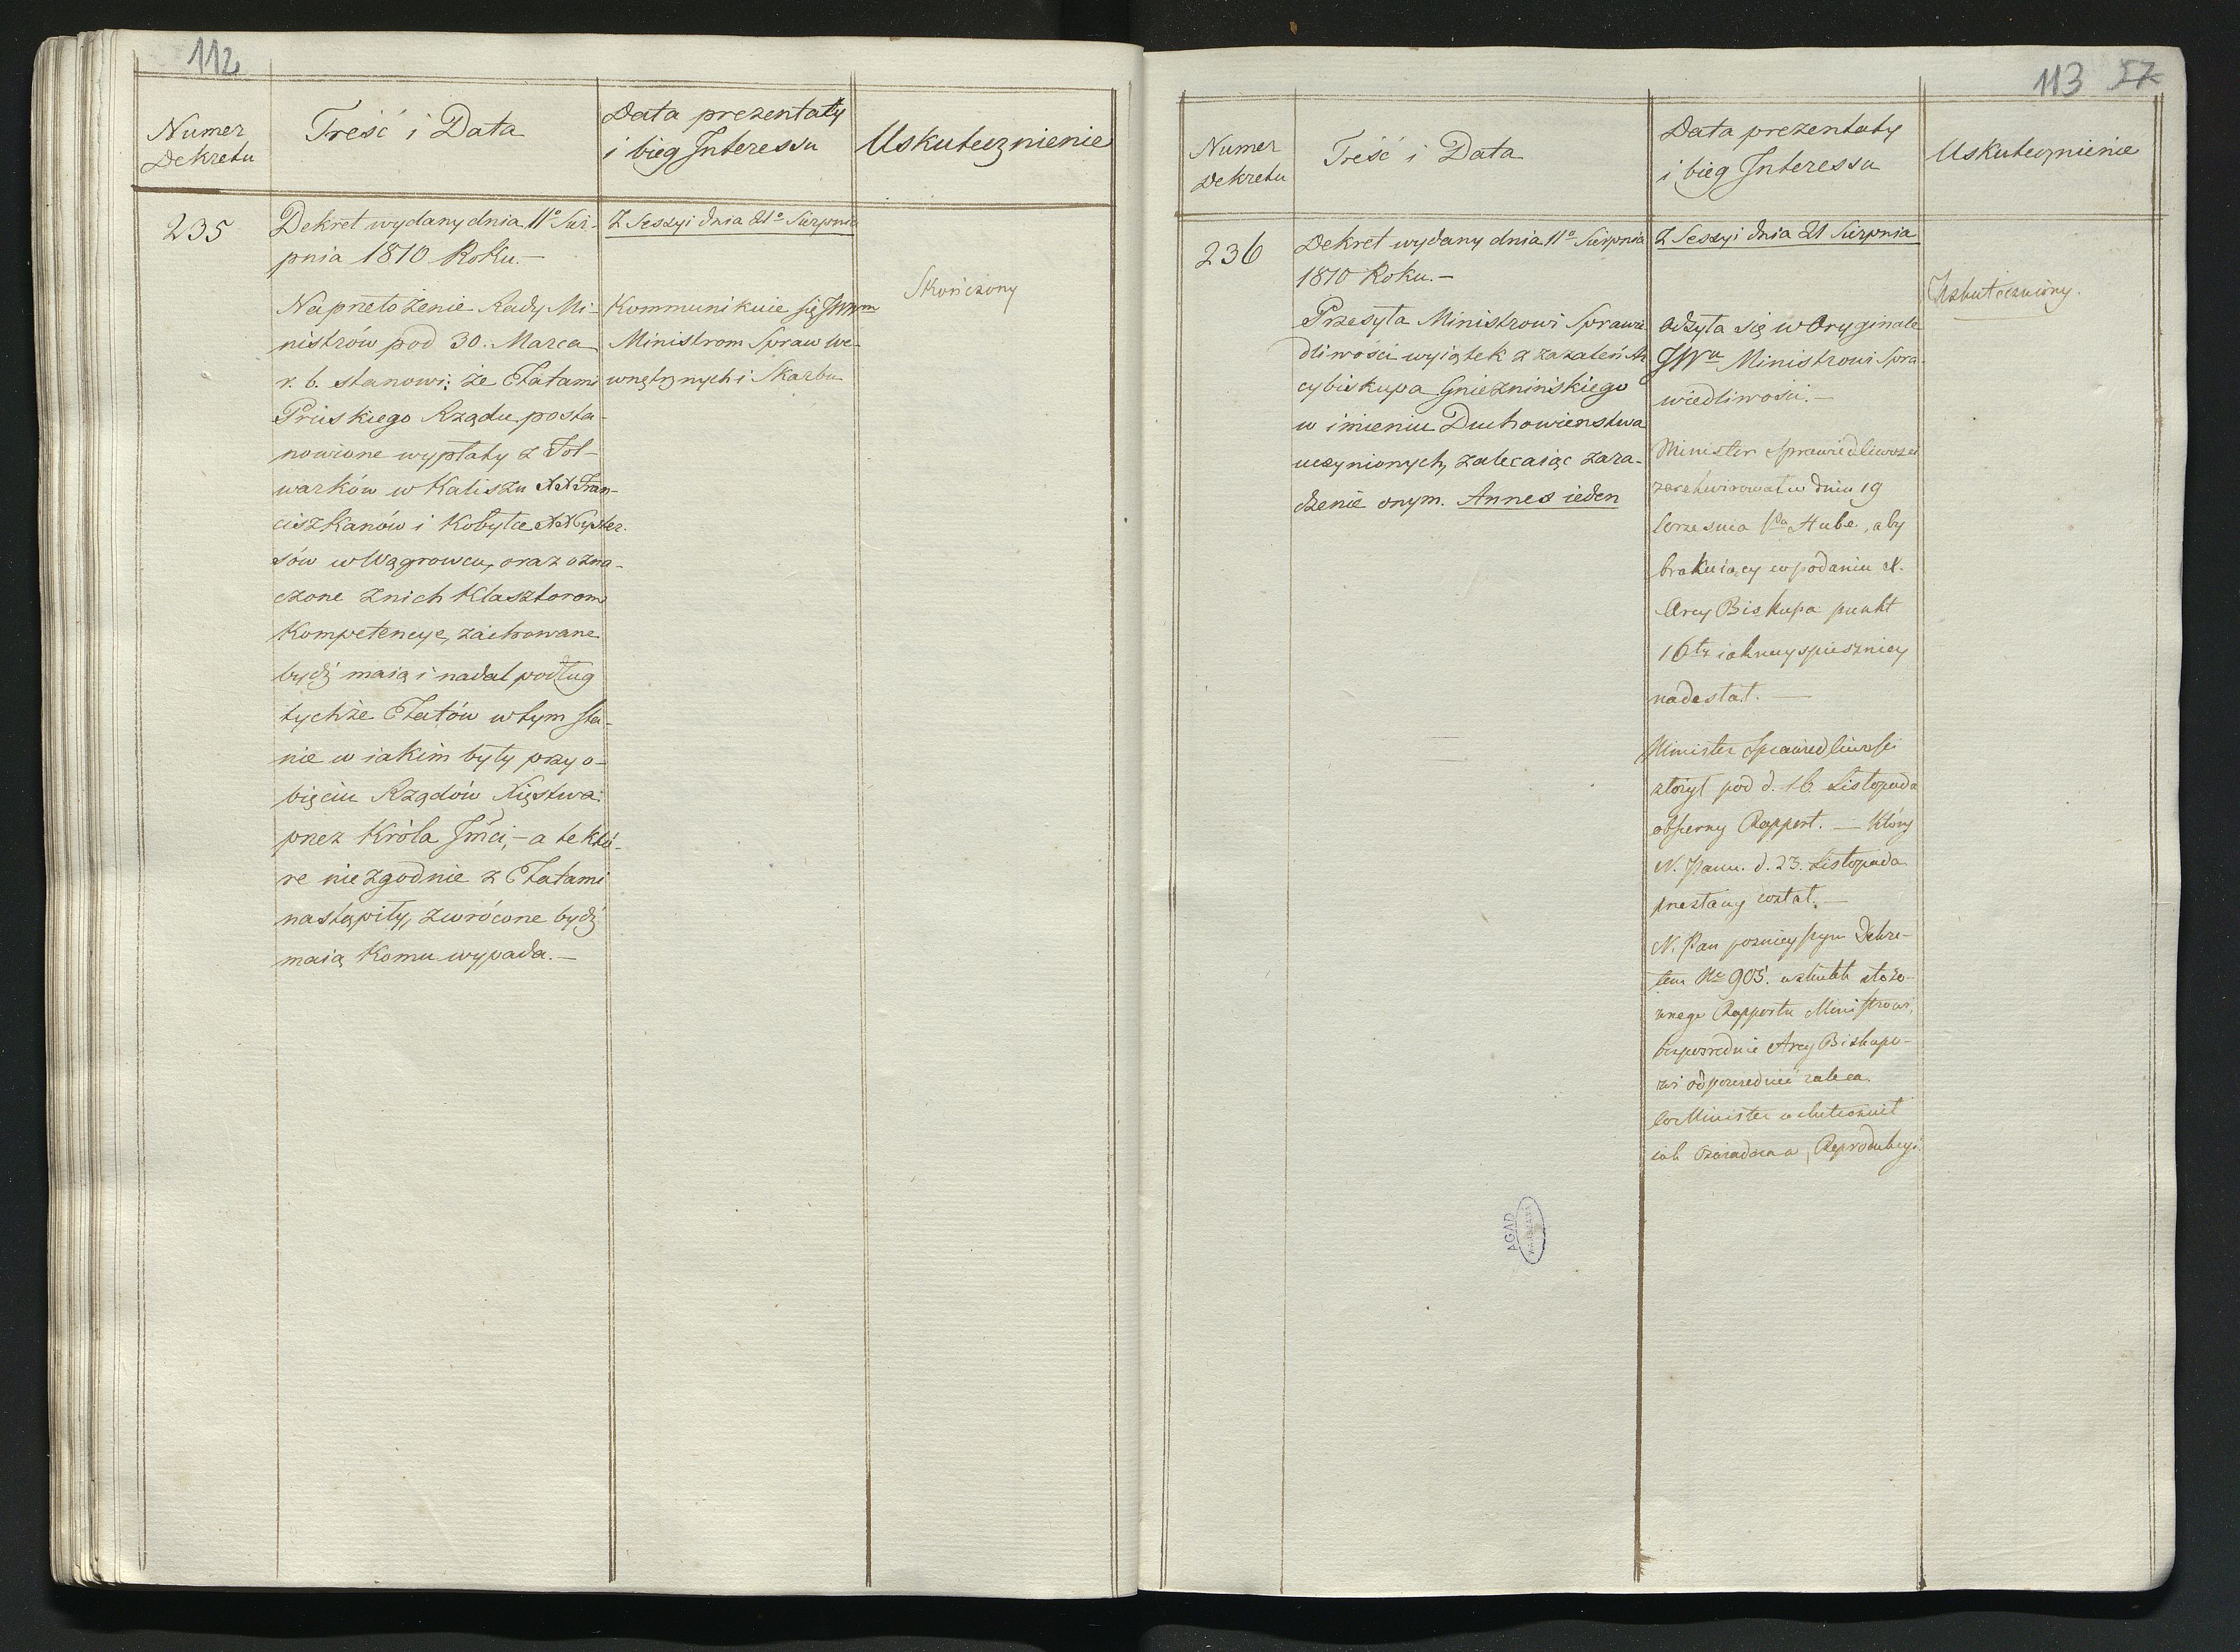 112
Numer
Dekretu
Treść i Data
Data prezentaty
i bieg Interessu
Uskutecznienie
235
Dekret wydany dnia 11º Sier-
pnia 1810 Roku.—
Na przełożenie Rady Mi-
nistrów pod 30. Marca
r. b. stanowi; że Etatami
Pruskiego Rządu posta-
nowione wypłaty z Fol-
warków w Kaliszu XX Fran-
ciszkanów i Kobylce XX Cyster-
sów w Wągrowcu, oraz ozna-
czone z nich Klasztorom
Kompetencye, zachowane
bydź maią i nadal podług
tychże Etatów w tym sta-
nie w iakim były przy o-
bięciu Rządów Xięstwa
przez Króla Jmci,— a te któ-
re niezgodnie z Etatami
nastąpiły, zwrócone bydź
maią komu wypada.—
Z Sessyi dnia 21º Sierpnia
Kommunikuie się JWWm
Ministrom Spraw We-
wnętrznych i Skarbu
Skończony
113 57
Numer
Dekretu
Treść i Data
Data prezentaty
i bieg Interessu
Uskutecznienie
236
Dekret wydany dnia 11º Sierpnia
1810 Roku.—
Przesyła Ministrowi Sprawie
dliwości wyiątek z zażaleń Ar
cybiskupa Gnieznińskiego
w imieniu Duchowienstwa
uczynionych, zalecaiąc zara-
dzenie onym. Annex ieden
Z Sessyi dnia 21 Sierpnia
Odsyła się w Oryginale
JWu Ministrowi Spra-
wiedliwości.—
Minister Sprawiedliwości
zarekwirował w dniu 19
Września Pa Hube, aby
brakuiący w podaniu X.
Arcy Biskupa punkt
16ty iaknayspieszniey
nadesłał.—
Minister Sprawiedliwości
złożył pod d. 16 Listopada
obszerny Rapport.— Który
N. Panu. d. 23. Listopada
przesłany został.—
N. Pan poznieyszym Dekre-
tem Nr 905. wskutek złożo-
nego Rapportu Ministrowi,
bezpośrednie Arcy Biskupo-
wi odpowiedzieć zaleca
Co Minister uskutecznił
iak Reprodukcyi.
Uskuteczniony.
AGAD
WARSZAWA